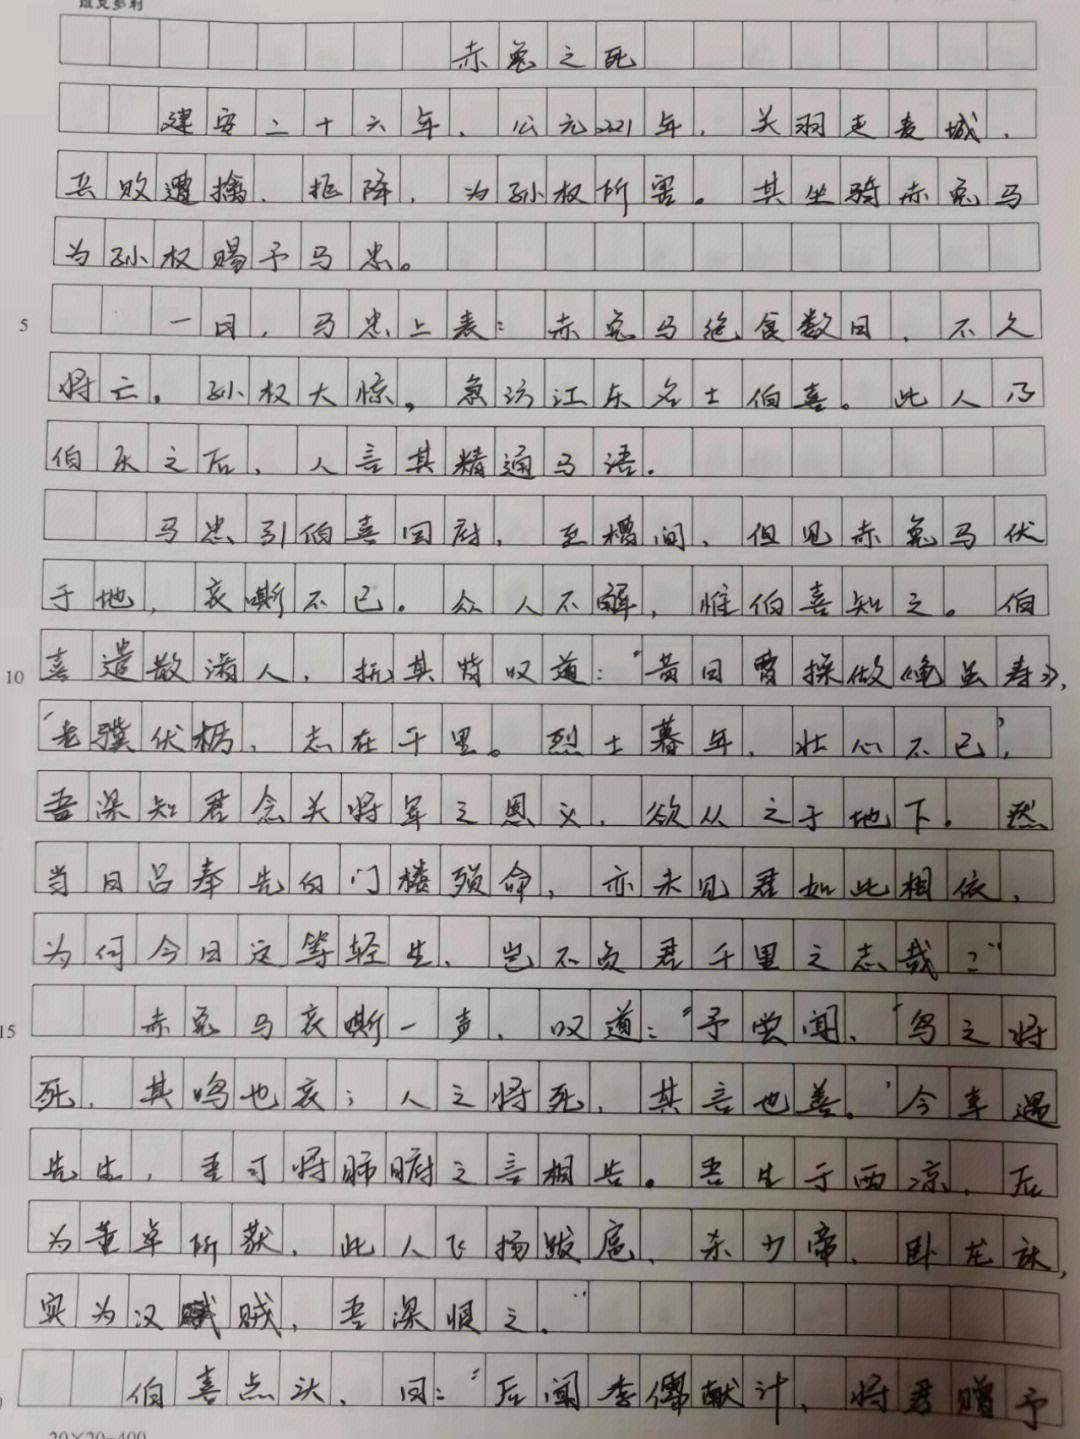 赤兔之死
建安二十六年，公元221年，关羽走麦城，
兵败遭擒，拒降，为孙权所害。其坐骑赤兔马
为孙权赐予马忠。
5
一日，马忠上表：赤兔马绝食数日，不久
将亡。孙权大惊，急访江东名士伯喜。此人乃
伯乐之后，人言其精通马语。
马忠引伯喜回府，至槽间，但见赤兔马伏
于地，哀嘶不已。众人不解，惟伯喜知之。伯
10
喜遣散诸人，抚其背叹道：“昔日曹操做《龟虽寿》，
‘老骥伏枥，志在千里。烈士暮年，壮心不已’，
吾深知君念关将军之恩义，欲从之于地下。然
当日吕奉先白门楼殒命，亦未见君如此相依，
为何今日这等轻生，岂不负君千里之志哉？”
15
赤兔马哀嘶一声，叹道：“予尝闻，‘鸟之将
死，其鸣也哀；人之将死，其言也善。’今幸遇
先生，吾可将肺腑之言相告。吾生于西凉，后
为董卓所获，此人飞扬跋扈，杀少帝，卧龙床，
实为汉贼，吾深恨之。”
伯喜点头，曰：“后闻李儒献计，将君赠予
20×20=400